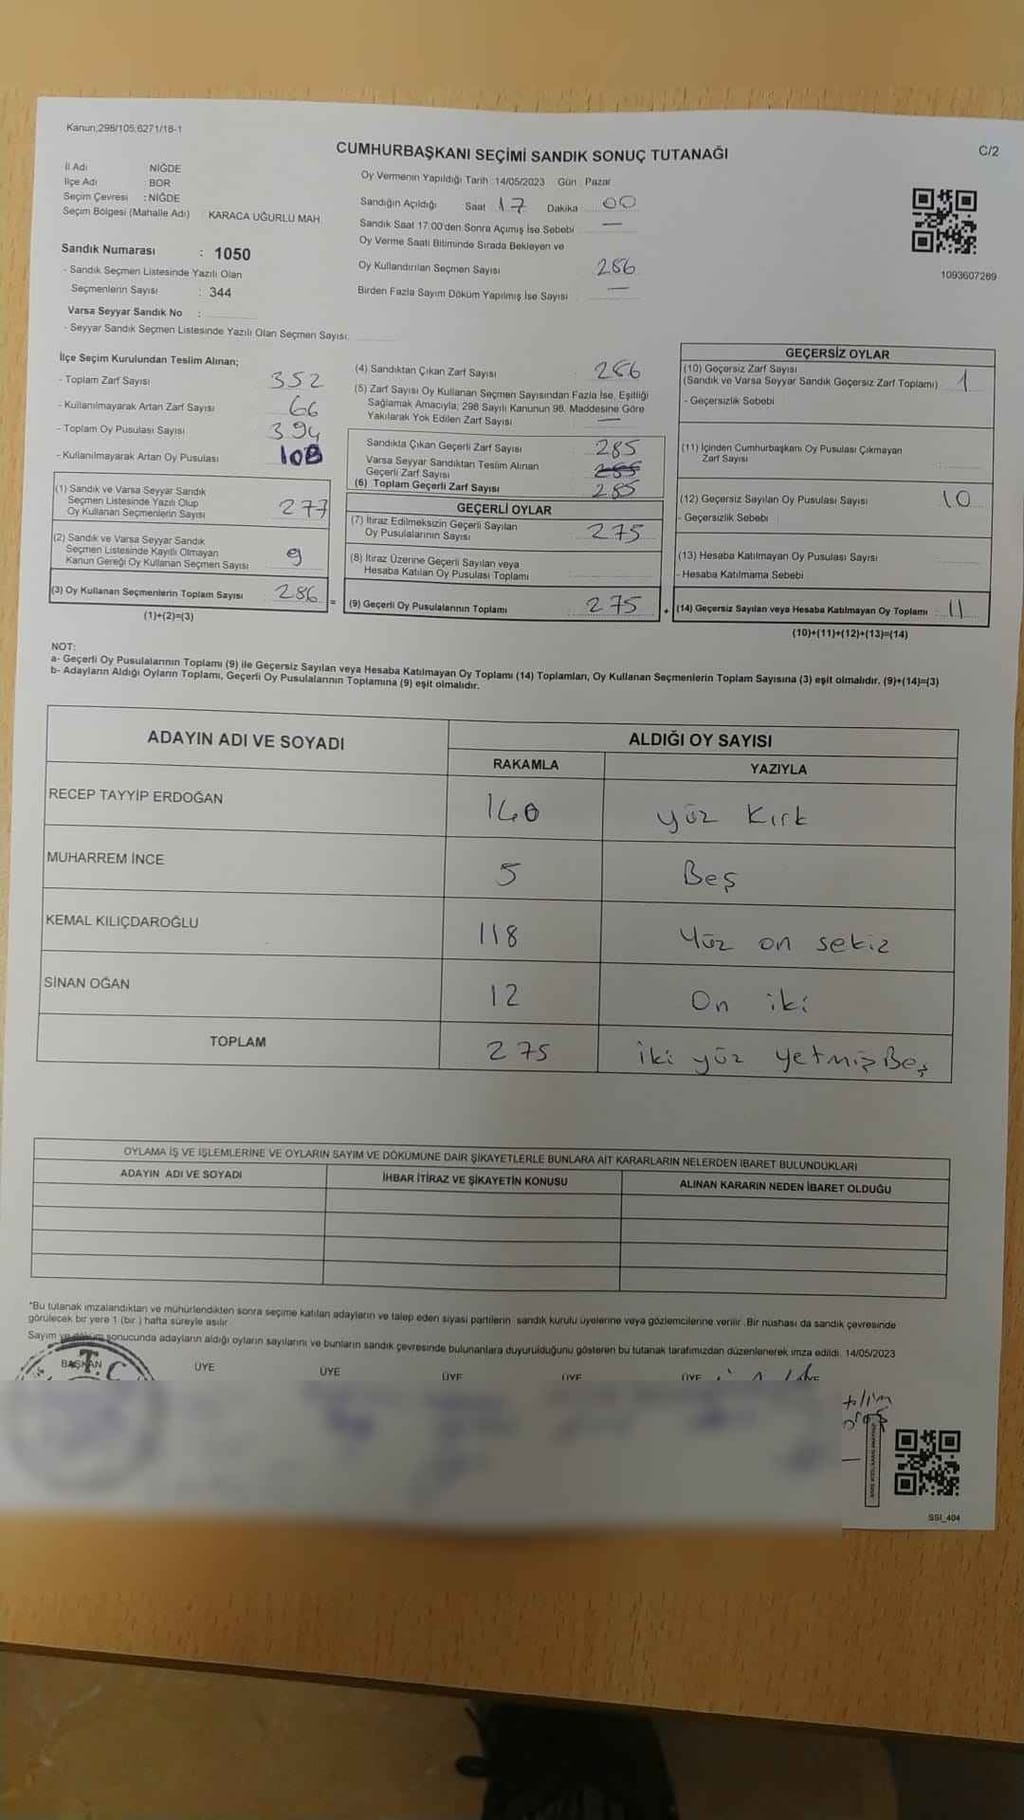 Kanun;298/105;6271/18-1
CUMHURBAŞKANI SEÇİMİ SANDIK SONUÇ TUTANAĞI
C/2
İl Adı NİĞDE
İlçe Adı : BOR
Seçim Çevresi : NİĞDE
Seçim Bölgesi (Mahalle Adı) KARACA UĞURLU MAH.
Sandık Numarası : 1050
- Sandık Seçmen Listesinde Yazılı Olan
Seçmenlerin Sayısı : 344
Varsa Seyyar Sandık No :
- Seyyar Sandık Seçmen Listesinde Yazılı Olan Seçmen Sayısı:
Oy Vermenin Yapıldığı Tarih :14/05/2023 Gün : Pazar
Sandığın Açıldığı Saat 17 Dakika 00
Sandık Saat 17:00'den Sonra Açımış İse Sebebi —
Oy Verme Saati Bitiminde Sırada Bekleyen ve
Oy Kullandırılan Seçmen Sayısı 286
Birden Fazla Sayım Döküm Yapılmış İse Sayısı —
1093607269
İlçe Seçim Kurulundan Teslim Alınan;
- Toplam Zarf Sayısı 352
- Kullanılmayarak Artan Zarf Sayısı 66
- Toplam Oy Pusulası Sayısı 394
- Kullanılmayarak Artan Oy Pusulası 108
(1) Sandık ve Varsa Seyyar Sandık
Seçmen Listesinde Yazılı Olup
Oy Kullanan Seçmenlerin Sayısı 277
(2) Sandık ve Varsa Seyyar Sandık
Seçmen Listesinde Kayıtlı Olmayan
Kanun Gereği Oy Kullanan Seçmen Sayısı 9
(3) Oy Kullanan Seçmenlerin Toplam Sayısı 286 =
(1)+(2)=(3)
(4) Sandıktan Çıkan Zarf Sayısı 286
(5) Zarf Sayısı Oy Kullanan Seçmen Sayısından Fazla İse, Eşitliği
Sağlamak Amacıyla; 298 Sayılı Kanunun 98. Maddesine Göre
Yakılarak Yok Edilen Zarf Sayısı —
Sandıkta Çıkan Geçerli Zarf Sayısı 285
Varsa Seyyar Sandıktan Teslim Alınan
Geçerli Zarf Sayısı 285
(6) Toplam Geçerli Zarf Sayısı 285
GEÇERLİ OYLAR
(7) İtiraz Edilmeksizin Geçerli Sayılan
Oy Pusulalarının Sayısı 275
(8) İtiraz Üzerine Geçerli Sayılan veya
Hesaba Katılan Oy Pusulası Toplamı
(9) Geçerli Oy Pusulalarının Toplamı 275 +
GEÇERSİZ OYLAR
(10) Geçersiz Zarf Sayısı
(Sandık ve Varsa Seyyar Sandık Geçersiz Zarf Toplamı) 1
- Geçersizlik Sebebi
(11) İçinden Cumhurbaşkanı Oy Pusulası Çıkmayan
Zarf Sayısı
(12) Geçersiz Sayılan Oy Pusulası Sayısı 10
- Geçersizlik Sebebi
(13) Hesaba Katılmayan Oy Pusulası Sayısı
- Hesaba Katılmama Sebebi
(14) Geçersiz Sayılan veya Hesaba Katılmayan Oy Toplamı 11
(10)+(11)+(12)+(13)=(14)
NOT:
a- Geçerli Oy Pusulalarının Toplamı (9) ile Geçersiz Sayılan veya Hesaba Katılmayan Oy Toplamı (14) Toplamları, Oy Kullanan Seçmenlerin Toplam Sayısına (3) eşit olmalıdır. (9)+(14)=(3)
b- Adayların Aldığı Oyların Toplamı, Geçerli Oy Pusulalarının Toplamına (9) eşit olmalıdır.
ADAYIN ADI VE SOYADI
ALDIĞI OY SAYISI
RAKAMLA YAZIYLA
RECEP TAYYİP ERDOĞAN 140 yüz kırk
MUHARREM İNCE 5 Beş
KEMAL KILIÇDAROĞLU 118 Yüz on sekiz
SİNAN OĞAN 12 On iki
TOPLAM 275 iki yüz yetmiş Beş
OYLAMA İŞ VE İŞLEMLERİNE VE OYLARIN SAYIM VE DÖKÜMÜNE DAİR ŞİKAYETLERLE BUNLARA AİT KARARLARIN NELERDEN İBARET BULUNDUKLARI
ADAYIN ADI VE SOYADI İHBAR İTİRAZ VE ŞİKAYETİN KONUSU ALINAN KARARIN NEDEN İBARET OLDUĞU
*Bu tutanak imzalandıktan ve mühürlendikten sonra seçime katılan adayların ve talep eden siyasi partilerin sandık kurulu üyelerine veya gözlemcilerine verilir. Bir nüshası da sandık çevresinde
görülecek bir yere 1 (bir ) hafta süreyle asılır.
Sayım ve döküm sonucunda adayların aldığı oyların sayılarını ve bunların sandık çevresinde bulunanlara duyurulduğunu gösteren bu tutanak tarafımızdan düzenlenerek imza edildi. 14/05/2023
BAŞKAN ÜYE ÜYE ÜYE ÜYE ÜYE
T.C
SSI_404